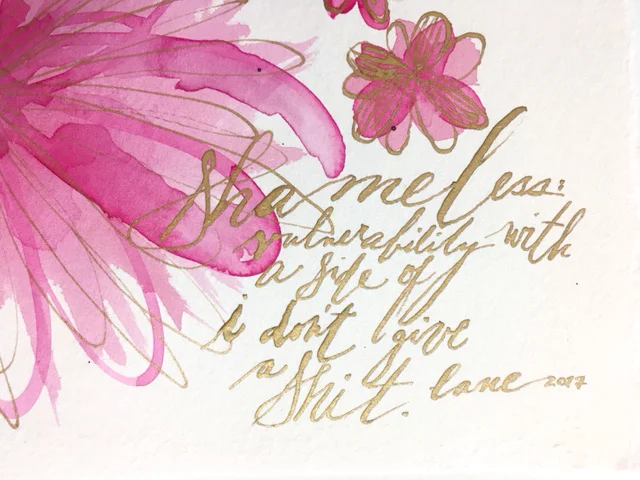 shameless:
vulnerability with
a side of
i don't give
a shit. lane 2017